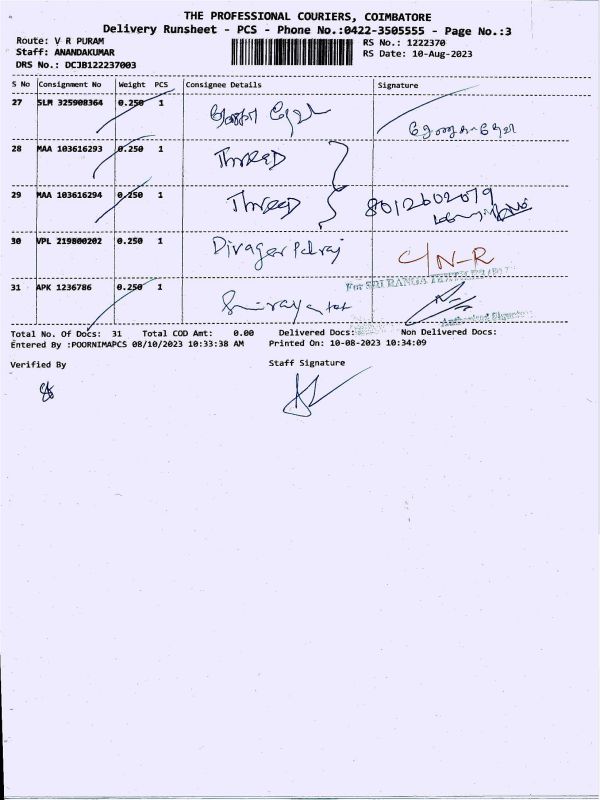 THE PROFESSIONAL COURIERS, COIMBATORE
Delivery Runsheet - PCS - Phone No.:0422-3505555 - Page No.:3
Route: V R PURAM
RS No.: 1222370
Staff: ANANDAKUMAR
RS Date: 10-Aug-2023
DRS No.: DCJB122237003
S No Consignment No Weight PCS Consignee Details Signature
27 SLM 325908364 0.250 1
28 MAA 103616293 0.250 1 Thread
29 MAA 103616294 0.250 1 Thread 8012602079
30 VPL 219800202 0.250 1 C/N-R
For SRI RANGA
31 APK 1236786 0.250 1
Authorised Signatory
Total No. Of Docs: 31 Total COD Amt: 0.00 Delivered Docs: Non Delivered Docs:
Entered By :POORNIMAPCS 08/10/2023 10:33:38 AM Printed On: 10-08-2023 10:34:09
Verified By Staff Signature